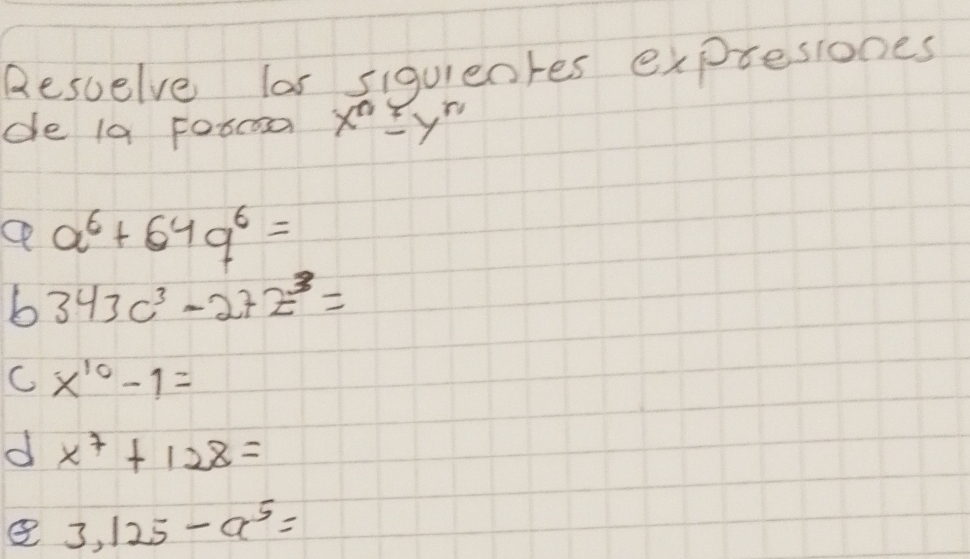 Resuelve las siguientes expresiones
de la forma xⁿ ± yⁿ
a a⁶ + 64q⁶ =
b 343c³ - 27z³ =
c x¹⁰ - 1 =
d x⁷ + 128 =
e 3,125 - a⁵ =